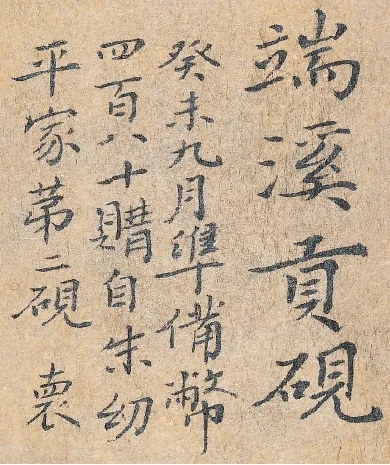 端溪貢硯
癸未九月準備幣
四百八十購自朱幼
平家第二硯 裛